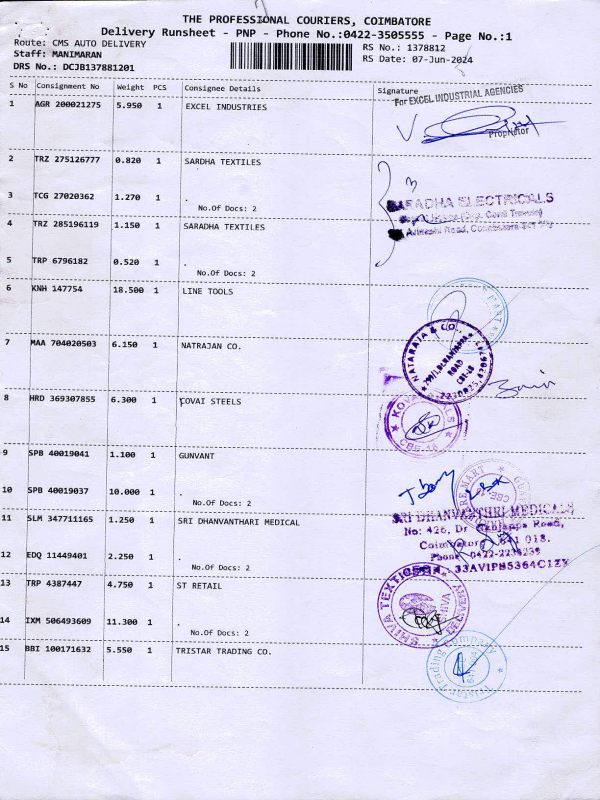 THE PROFESSIONAL COURIERS, COIMBATORE
Delivery Runsheet - PNP - Phone No.:0422-3505555 - Page No.:1
Route: CMS AUTO DELIVERY
Staff: MANIMARAN
DRS No.: DCJB137881201
RS No.: 1378812
RS Date: 07-Jun-2024
S No Consignment No Weight PCS Consignee Details Signature
1 AGR 200021275 5.950 1 EXCEL INDUSTRIES
For EXCEL INDUSTRIAL AGENCIES
Proprietor
2 TRZ 275126777 0.820 1 SARDHA TEXTILES
3 TCG 27020362 1.270 1 .
No.Of Docs: 2
SARADHA ELECTRICALS
Avinashi Road,
4 TRZ 285196119 1.150 1 SARADHA TEXTILES
5 TRP 6796182 0.520 1 .
No.Of Docs: 2
6 KNH 147754 18.500 1 LINE TOOLS
MART
7 MAA 704020503 6.150 1 NATRAJAN CO.
NATARAJA & CO.,
ROAD
CBE-18
8 HRD 369307855 6.300 1 COVAI STEELS
9 SPB 40019041 1.100 1 GUNVANT
10 SPB 40019037 10.000 1 .
No.Of Docs: 2
11 SLM 347711165 1.250 1 SRI DHANVANTHARI MEDICAL
SRI DHANVANTHRI MEDICALS
No: 426, Dr. Nanjappa Road,
Coimbatore - 641 018.
Phone: 0422-2236239
33AVIPB5364C1ZY
12 EDQ 11449401 2.250 1 .
13 TRP 4387447 4.750 1 ST RETAIL
SHIVA TEXTILES
14 IXM 506493609 11.300 1 .
No.Of Docs: 2
15 BBI 100171632 5.550 1 TRISTAR TRADING CO.
Tristar Trading Company